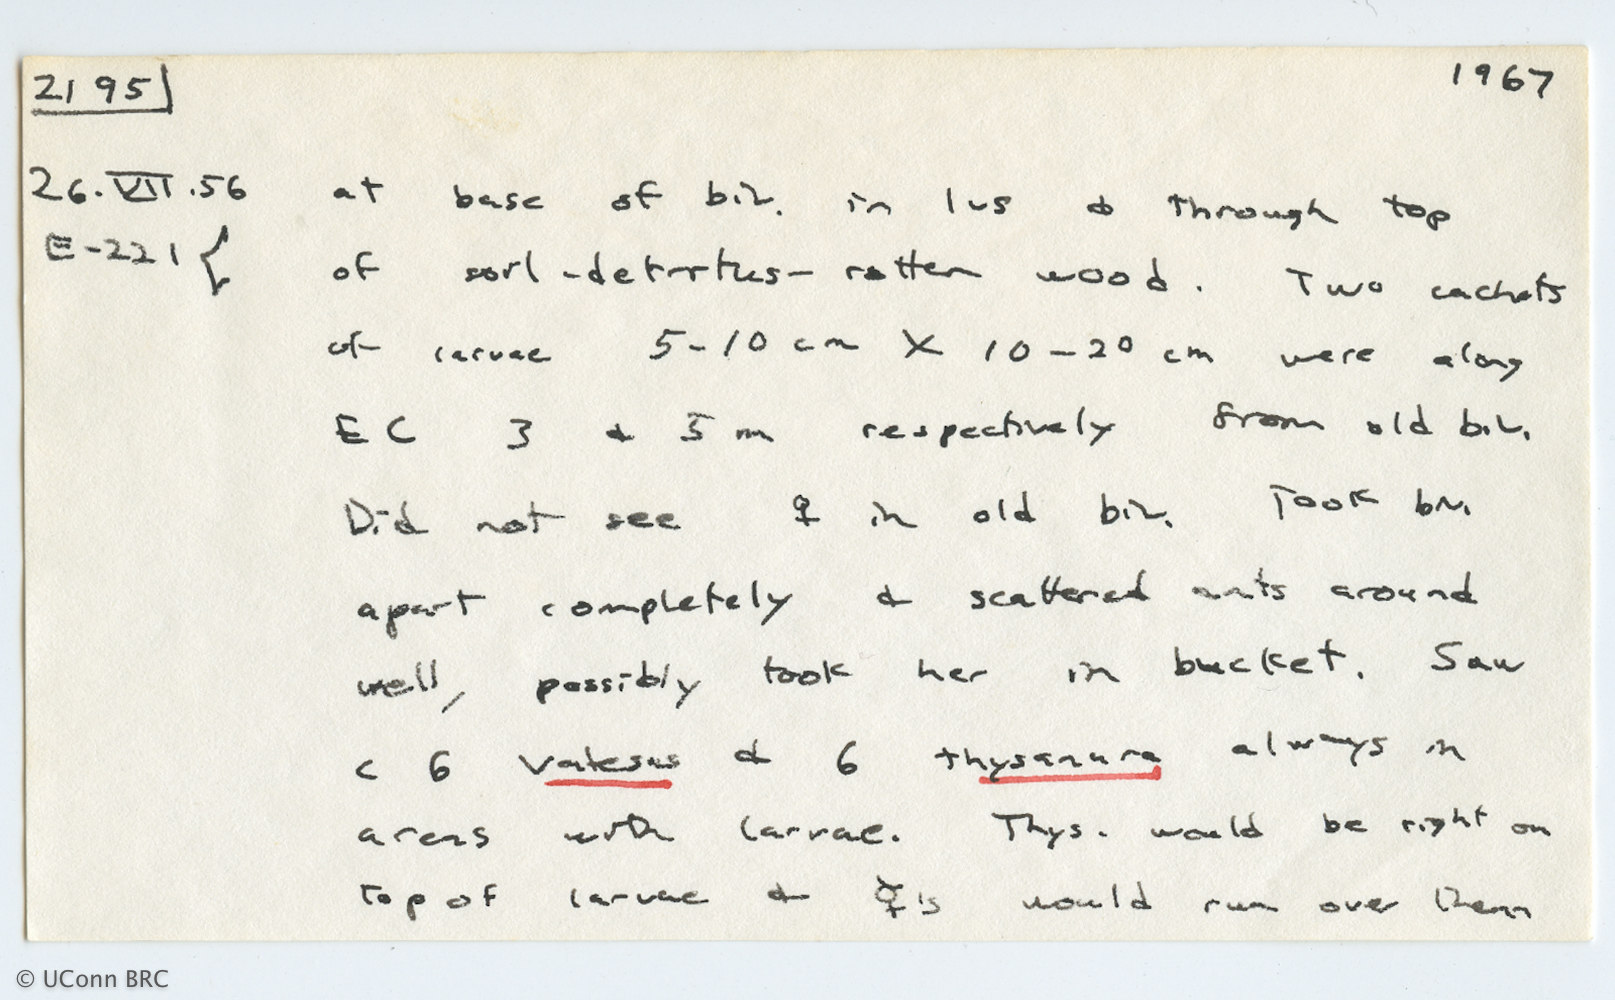 2195
1967
26.VII.56 at base of biv. in lvs & through top
E-221 { of soil-detritus-rotten wood. Two cachets
of larvae 5-10 cm X 10-20 cm were along
EC 3 & 5 m respectively from old biv.
Did not see ♀ in old biv. Took biv.
apart completely & scattered ants around
well, possibly took her in bucket. Saw
c 6 Vatesus & 6 thysanura always in
areas with larvae. Thys. would be right on
top of larvae & ☿'s would run over them
© UConn BRC